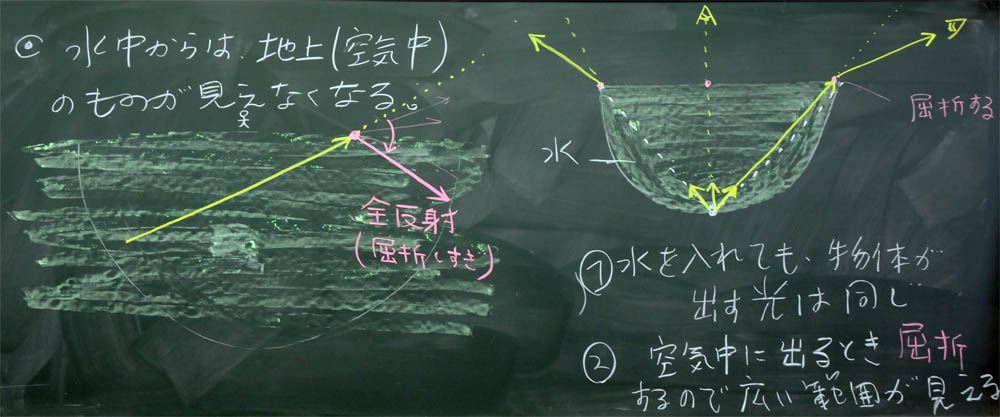 ◎ 水中からは、地上(空気中)
のものが見えなくなる。
全反射
(屈折しすぎ)
水
屈折する
① 水を入れても、物体が
出す光は同じ
② 空気中に出るとき屈折
するので広い範囲が見える